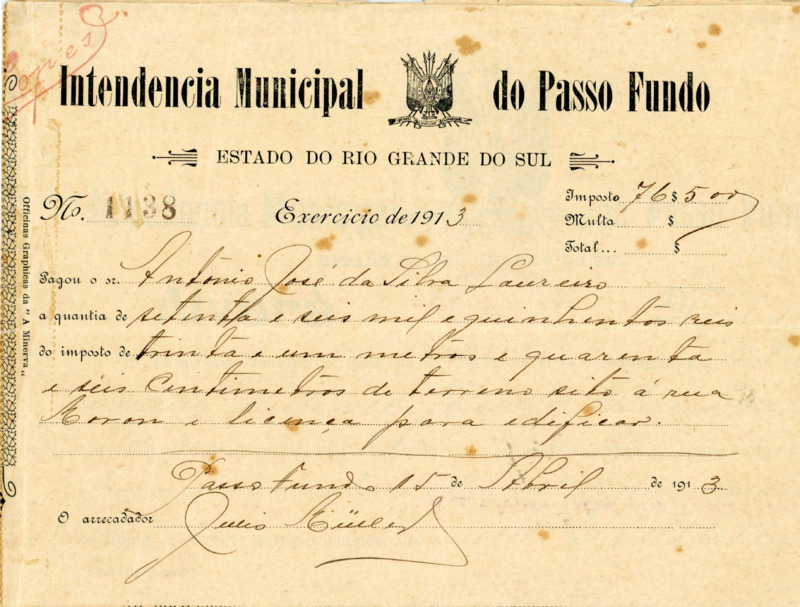 Intendencia Municipal do Passo Fundo
ESTADO DO RIO GRANDE DO SUL
No. 1138 Exercicio de 1913
Imposto 76$500
Multa $
Total... $
Pagou o sr. Antonio José da Silva Loureiro
a quantia de setenta e seis mil e quinhentos reis
do imposto de trinta e um metros e quarenta
e seis centimetros de terreno sito á rua
Moron e licença para edificar.
Passo Fundo 15 de Abril de 1913
O arrecadador Julio Müller
Officinas Graphicas da "A Minerva"